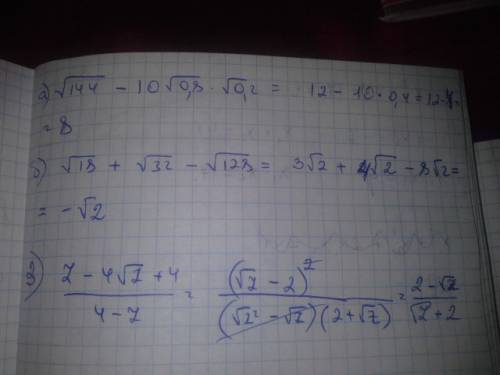 а) √144 - 10√0,8 · √0,2 = 12 - 10 · 0,4 = 12-4=
= 8
б) √18 + √32 - √128 = 3√2 + 4√2 - 8√2 =
= -√2
(7 - 4√7 + 4)/(4 - 7) = (√7 - 2)²/((√2² - √7)(2 + √7)) = (2 - √7)/(√7 + 2)